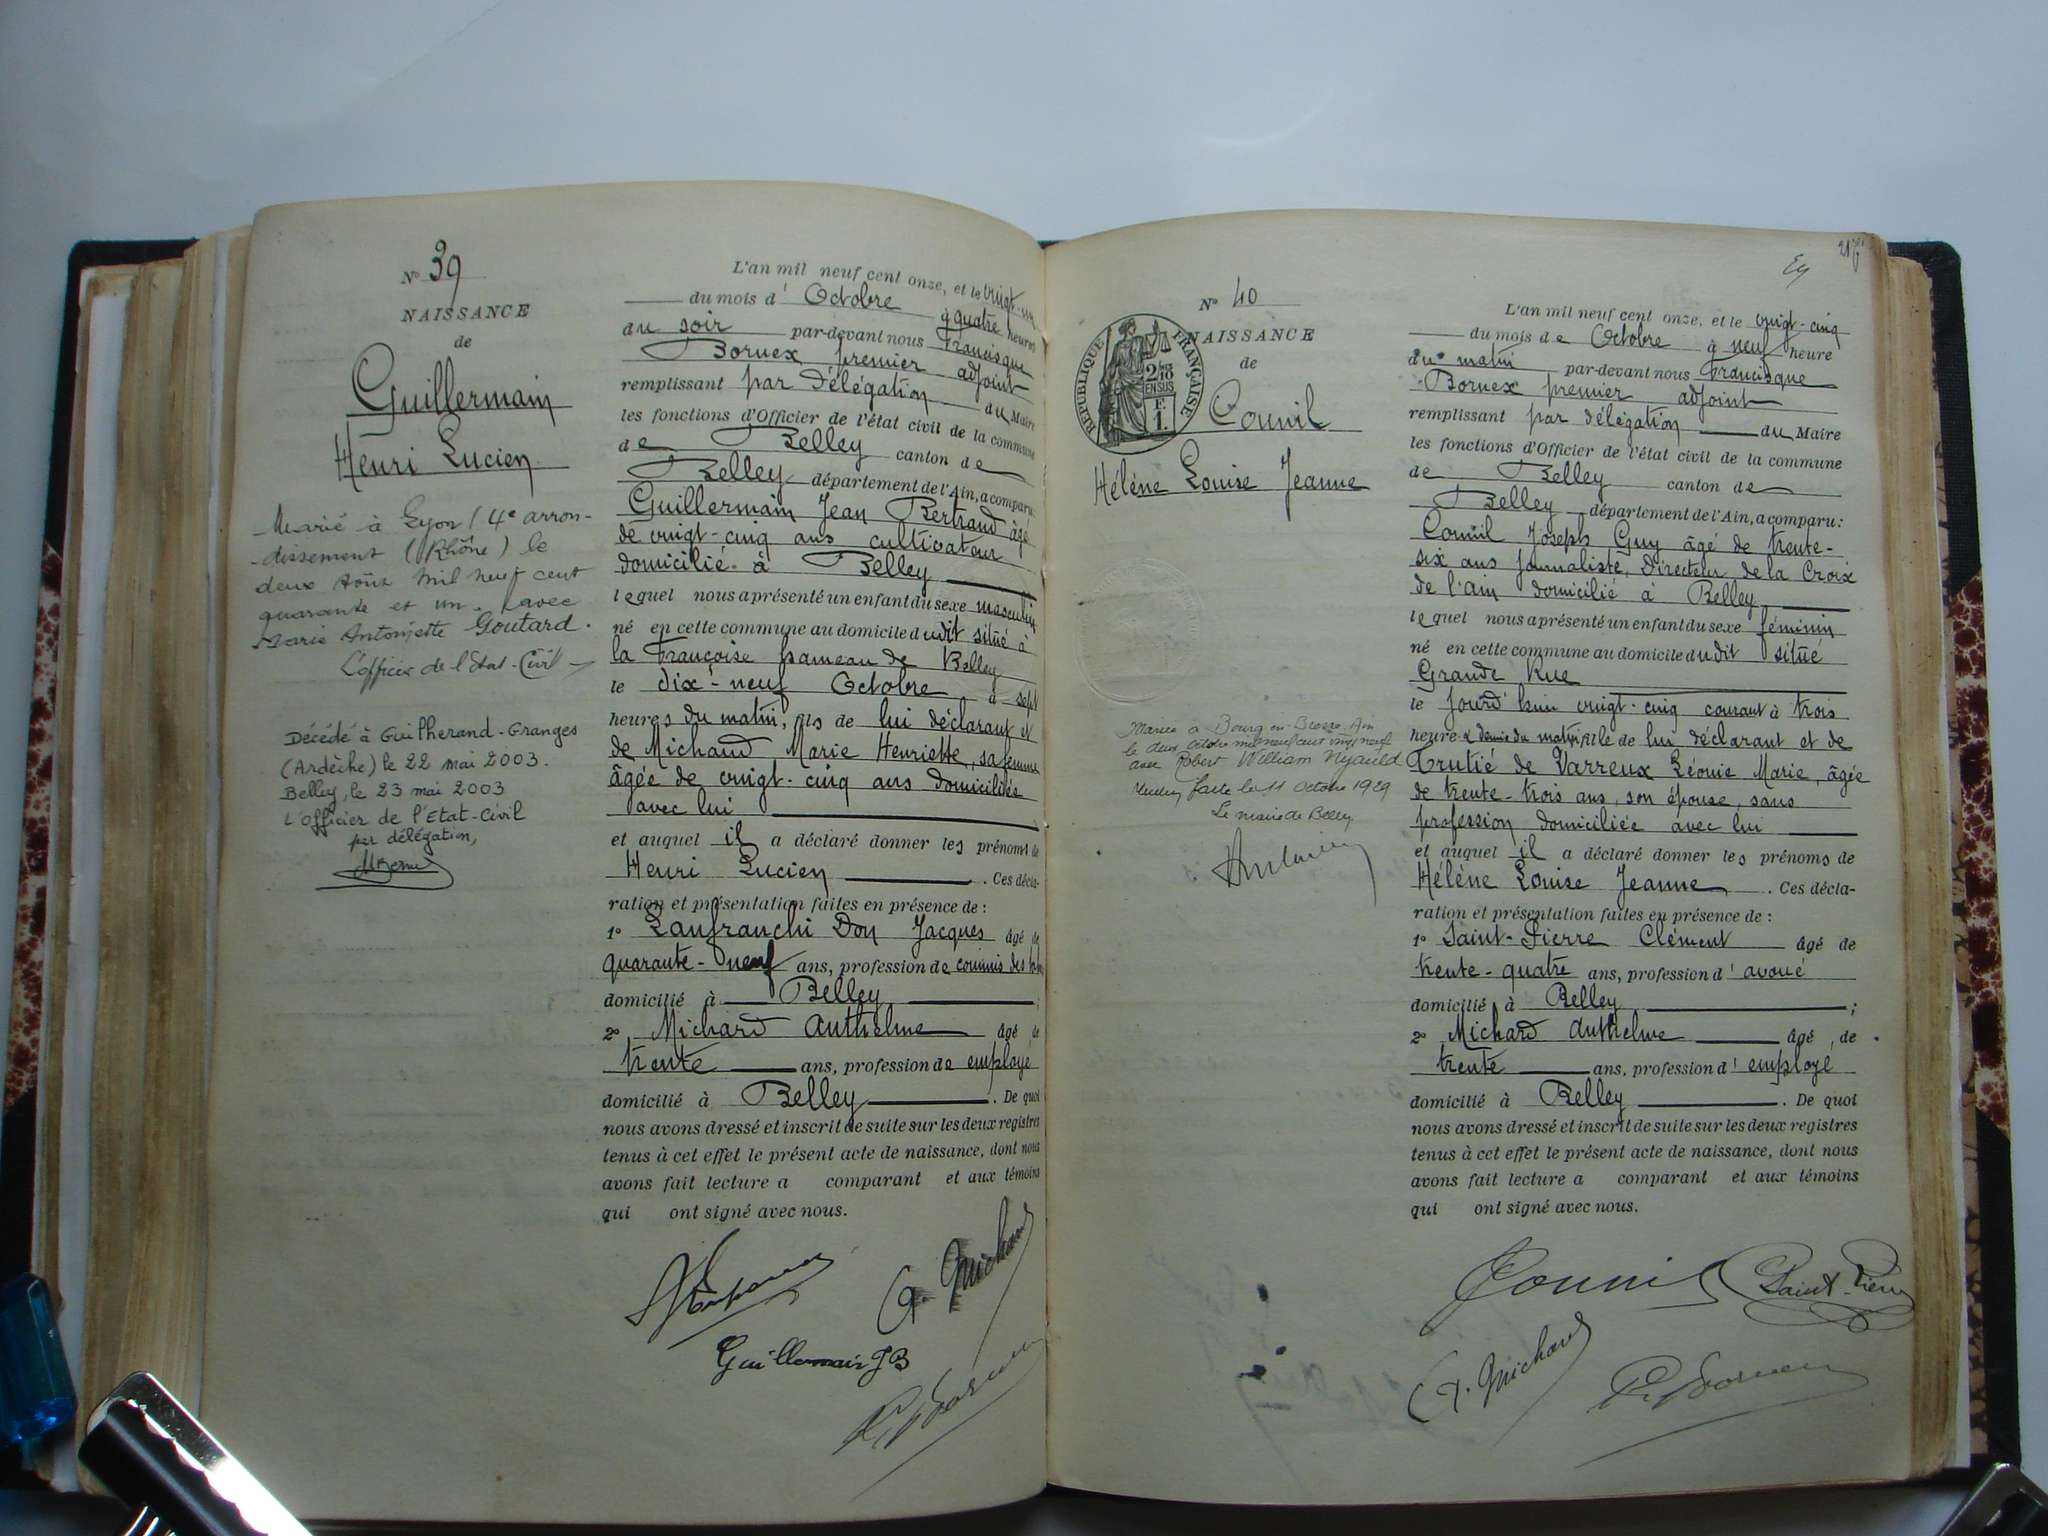 N° 39
NAISSANCE
de
Guillermain
Henri Lucien
Marié à Lyon (4e arron-
-dissement (Rhône) le
deux Août mil neuf cent
quarante et un. avec
Marie Antoinette Goutard.
L'officier de l'Etat-Civil
Décédé à Guilherand-Granges
(Ardèche) le 22 mai 2003.
Belley, le 23 mai 2003
L'Officier de l'Etat-Civil
par délégation,
L'an mil neuf cent onze, et le vingt-un
du mois d' Octobre à quatre heures
du soir par-devant nous Francisque
Bornex premier adjoint
remplissant par délégation du Maire
les fonctions d'Officier de l'état civil de la commune
de Belley canton de
Belley département de l'Ain, a comparu:
Guillermain Jean Bertrand âgé
de vingt-cinq ans cultivateur
domicilié à Belley
lequel nous a présenté un enfant du sexe masculin
né en cette commune au domicile dudit situé à
la Françoise hameau de Belley
le dix-neuf Octobre à sept
heures du matin, fils de lui déclarant et
de Michaud Marie Henriette, sa femme
âgée de vingt-cinq ans domiciliés
avec lui
et auquel il a déclaré donner les prénoms de
Henri Lucien . Ces décla-
ration et présentation faites en présence de :
1° Lanfranchi Don Jacques âgé de
quarante-neuf ans, profession de commis des
domicilié à Belley ;
2° Michard Anthelme âgé de
trente ans, profession de employé
domicilié à Belley . De quoi
nous avons dressé et inscrit de suite sur les deux registres
tenus à cet effet le présent acte de naissance, dont nous
avons fait lecture a comparant et aux témoins
qui ont signé avec nous.
A. Michard
Guillermain JB
F. Bornex
N° 40
NAISSANCE
de
RÉPUBLIQUE FRANÇAISE
2/10
EN SUS
F.
1.
Counil
Hélène Louise Jeanne
Mariée à Bourg-en-Bresse, Ain
le deux Octobre mil neuf cent vingt neuf
avec Robert William
faite le 11 octobre 1929
Le maire de Belley
L'an mil neuf cent onze, et le vingt-cinq
du mois de Octobre à neuf heure
du matin par-devant nous Francisque
Bornex premier adjoint
remplissant par délégation du Maire
les fonctions d'Officier de l'état civil de la commune
de Belley canton de
Belley département de l'Ain, a comparu:
Counil Joseph Guy âgé de trente-
six ans journaliste, Directeur de la Croix
de l'Ain domicilié à Belley
lequel nous a présenté un enfant du sexe féminin
né en cette commune au domicile dudit situé
Grande Rue
le jourd'hui vingt-cinq courant à trois
heure & demie du matin fille de lui déclarant et de
Trutié de Varreux Léonie Marie, âgée
de trente-trois ans, son épouse, sans
profession domiciliée avec lui
et auquel il a déclaré donner les prénoms de
Hélène Louise Jeanne . Ces décla-
ration et présentation faites en présence de :
1° Saint-Pierre Clément âgé de
trente-quatre ans, profession d' avoué
domicilié à Belley ;
2° Michard Anthelme âgé de
trente ans, profession d' employé
domicilié à Belley . De quoi
nous avons dressé et inscrit de suite sur les deux registres
tenus à cet effet le présent acte de naissance, dont nous
avons fait lecture a comparant et aux témoins
qui ont signé avec nous.
Counil Saint-Pierre
A. Michard F. Bornex